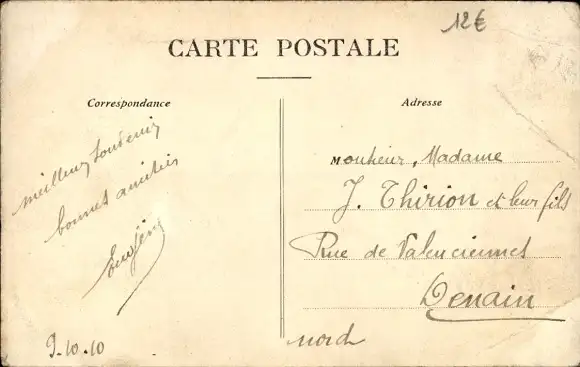 12€
CARTE POSTALE
Correspondance
Adresse
meilleur souvenir
bonnes amitiés
Eugène
9.10.10
Monsieur, Madame
J. Thirion et leur fils
Rue de Valenciennes
Denain
Nord